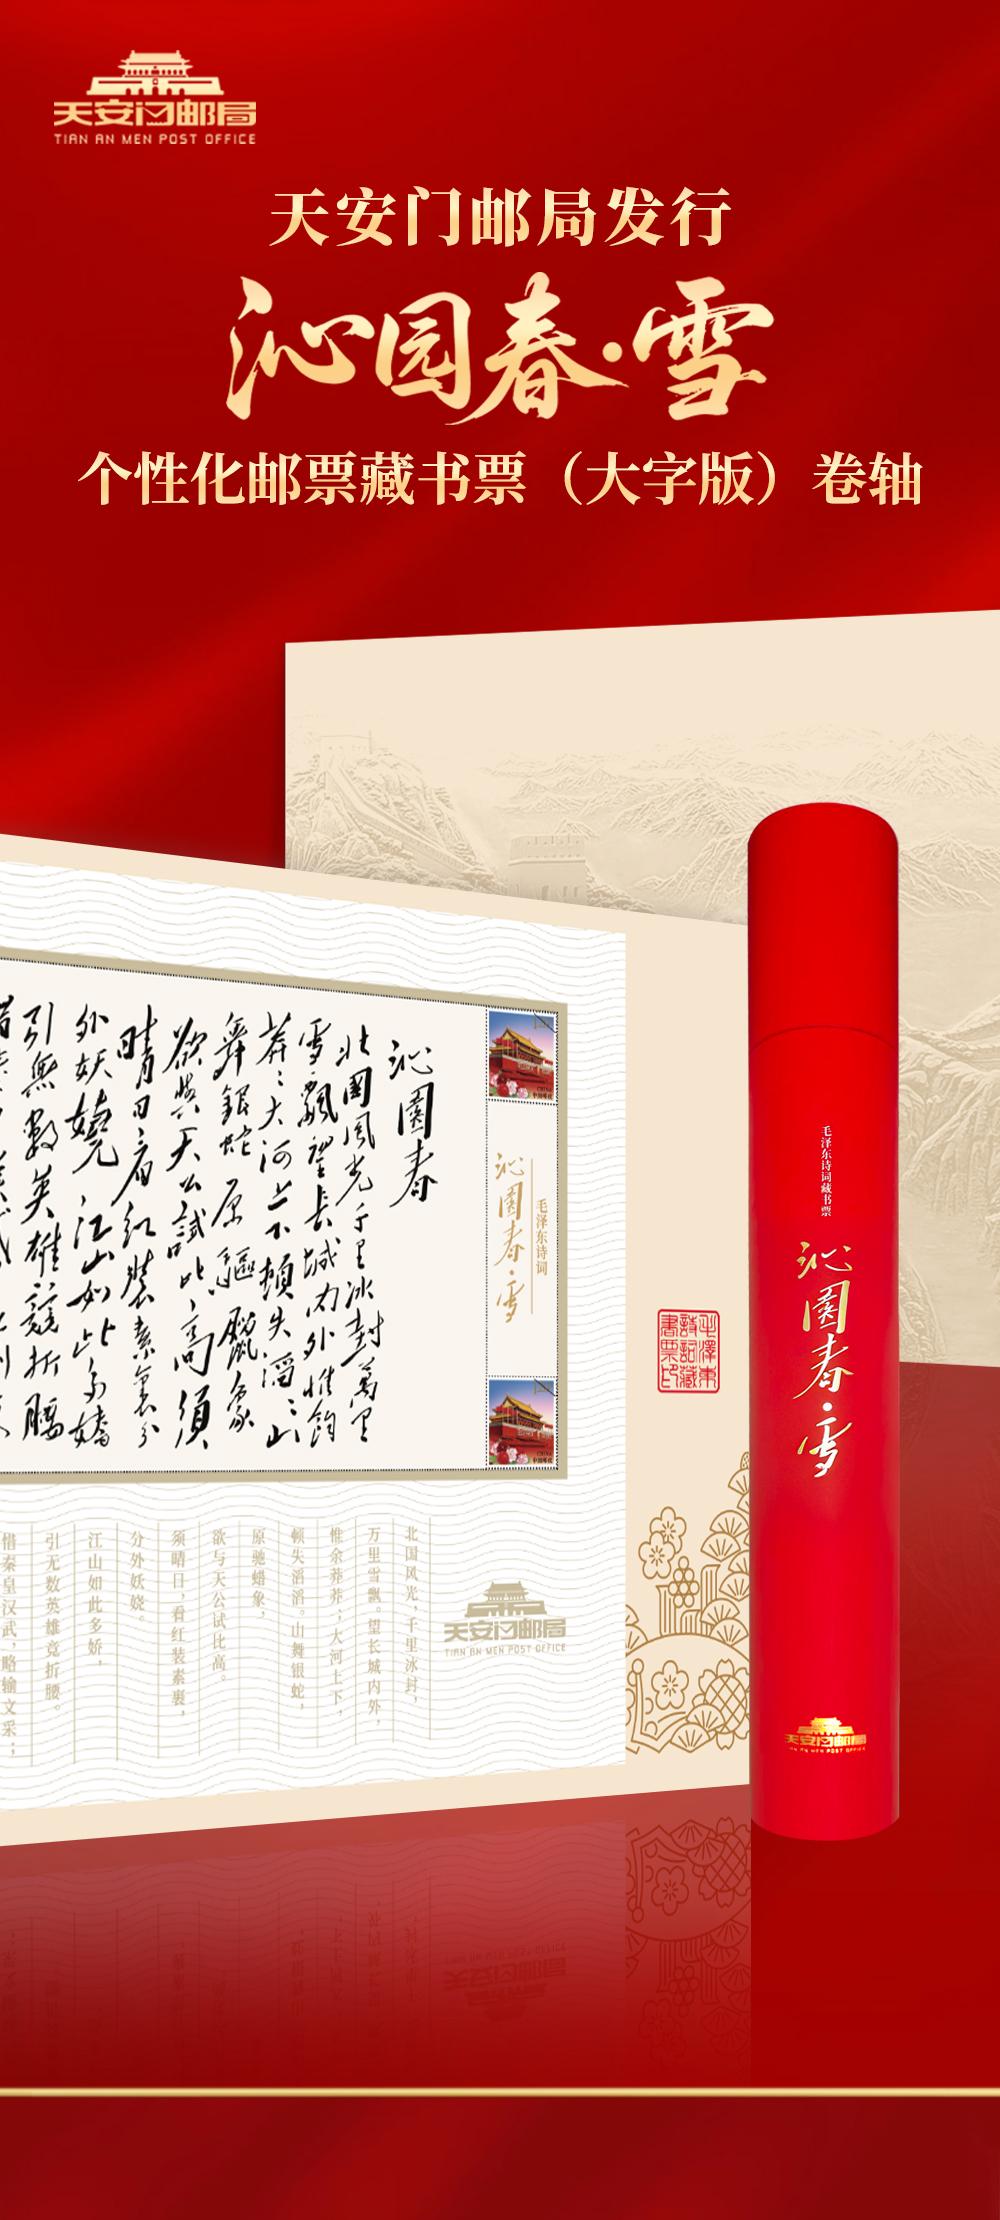 天安门邮局
TIAN AN MEN POST OFFICE
天安门邮局发行
沁园春·雪
个性化邮票藏书票（大字版）卷轴
沁園春
北國風光千里冰封萬里
雪飘望长城内外惟餘
莽〻大河上下頓失滔〻山
舞銀蛇原驅臘象
欲與天公試比高須
晴日看红装素裹分
外妖嬈江山如此多嬌
引無數英雄競折腰
毛泽东诗词
沁園春·雪
毛澤東
詩詞藏
書票印
北国风光，千里冰封，
万里雪飘。望长城内外，
惟余莽莽；大河上下，
顿失滔滔。山舞银蛇，
原驰蜡象，
欲与天公试比高。
须晴日，看红装素裹，
分外妖娆。
江山如此多娇，
引无数英雄竞折腰。
惜秦皇汉武，略输文采；
天安门邮局
TIAN AN MEN POST OFFICE
毛泽东诗词藏书票
沁園春·雪
天安门邮局
TIAN AN MEN POST OFFICE